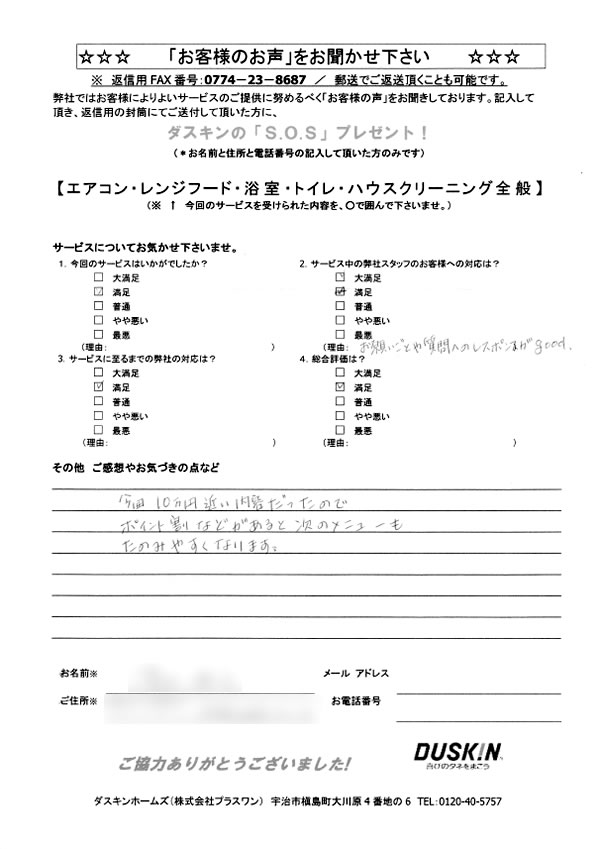 ☆☆☆ 「お客様のお声」をお聞かせ下さい ☆☆☆
※ 返信用FAX番号:0774-23-8687 / 郵送でご返送頂くことも可能です。
弊社ではお客様によりよいサービスのご提供に努めるべく「お客様の声」をお聞きしております。記入して
頂き、返信用の封筒にてご送付して頂いた方に、
ダスキンの「S.O.S」プレゼント!
(*お名前と住所と電話番号の記入して頂いた方のみです)
【エアコン・レンジフード・浴室・トイレ・ハウスクリーニング全般】
(※ ↑ 今回のサービスを受けられた内容を、〇で囲んで下さいませ。)
サービスについてお気かせ下さいませ。
1. 今回のサービスはいかがでしたか?
□ 大満足
☑ 満足
□ 普通
□ やや悪い
□ 最悪
(理由: )
2. サービス中の弊社スタッフのお客様への対応は?
□ 大満足
☑ 満足
□ 普通
□ やや悪い
□ 最悪
(理由: お願いごとや質問へのレスポンスがgood.
3. サービスに至るまでの弊社の対応は?
□ 大満足
☑ 満足
□ 普通
□ やや悪い
□ 最悪
(理由: )
4. 総合評価は?
□ 大満足
☑ 満足
□ 普通
□ やや悪い
□ 最悪
(理由: )
その他 ご感想やお気づきの点など
今回10万円近い内容だったので
ポイント割などがあると次のメニューも
たのみやすくなります。
お名前※
メール アドレス
ご住所※
お電話番号
ご協力ありがとうございました!
DUSKIN
喜びのタネをまこう
ダスキンホームズ(株式会社プラスワン) 宇治市槇島町大川原4番地の6 TEL:0120-40-5757